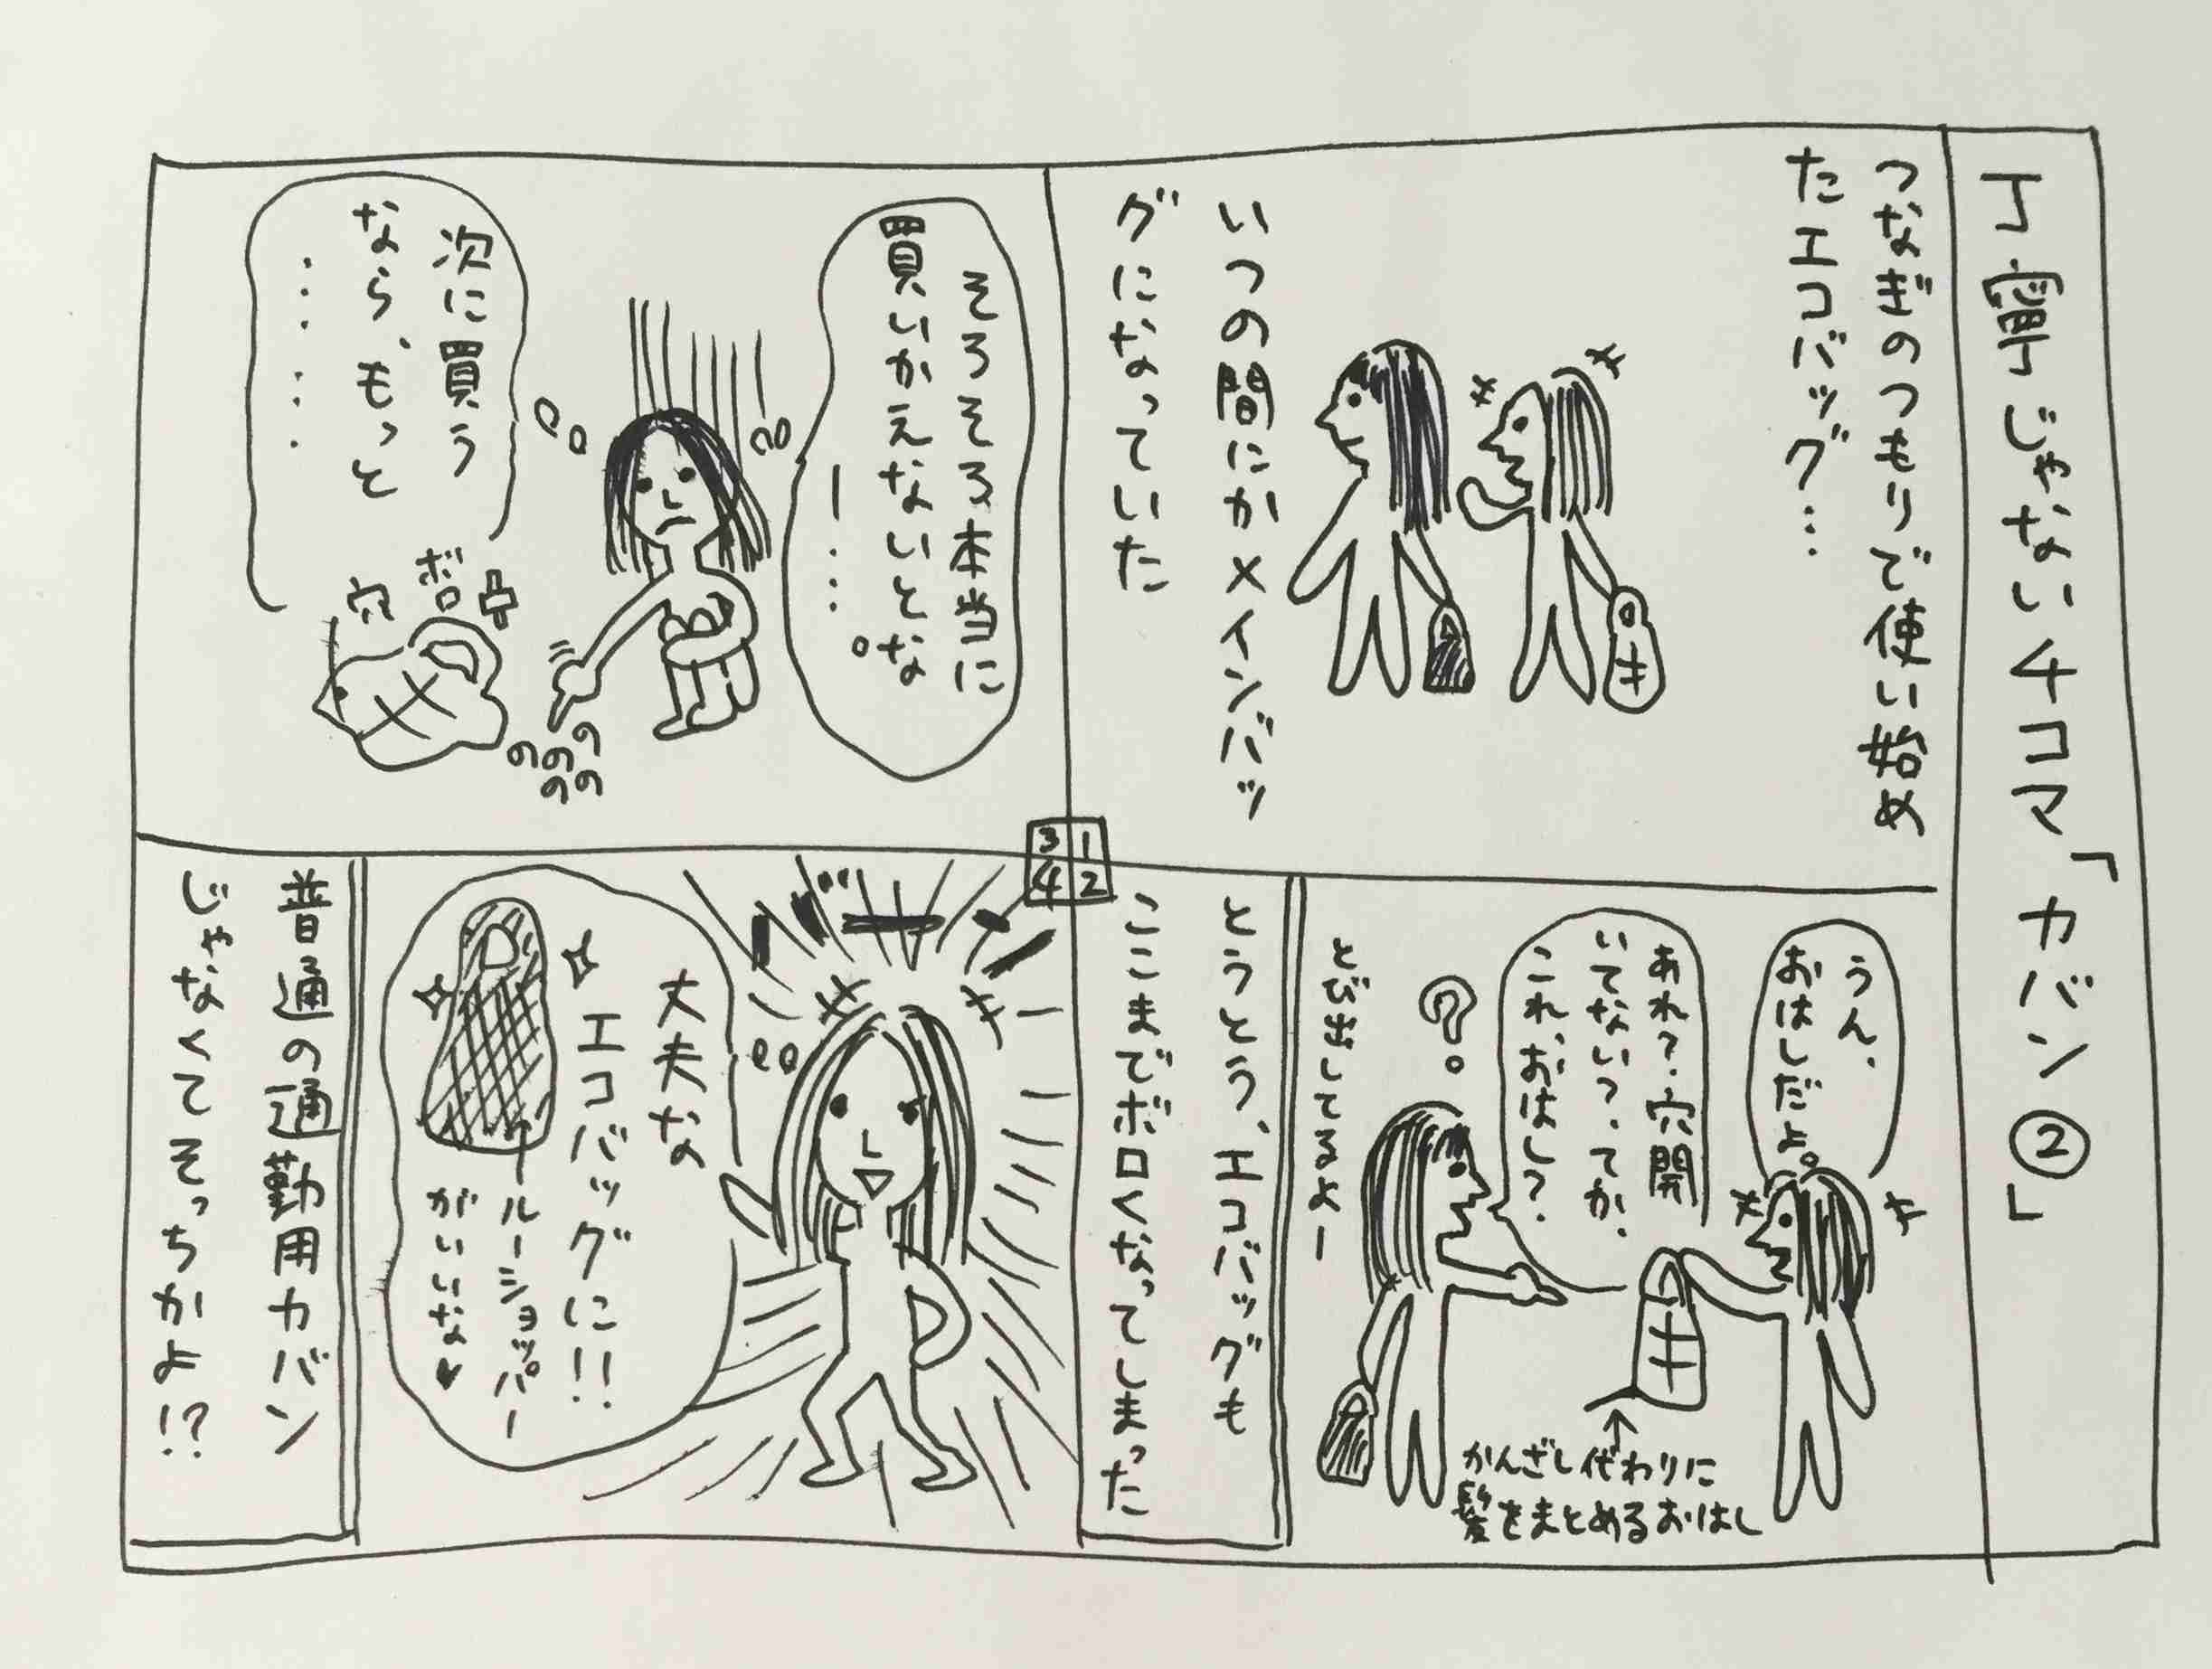 丁寧じゃない4コマ「カバン②」
つなぎのつもりで使い始め
たエコバッグ…
いつの間にかメインバッ
グになっていた
うん、
おはしだよ。
あれ?穴開
いてない?てか、
これ、おはし?
?
とび出してるよー
かんざし代わりに
髪をまとめるおはし
とうとう、エコバッグも
ここまでボロくなってしまった
1
2
3
4
そろそろ本当に
買いかえないとな
ー…。
次に買う
なら、もっと
……
ボロ
穴
ののの
のの
ババーン
丈夫な
エコバッグに!!
ルーショッパー
がいいな♥
普通の通勤用カバン
じゃなくてそっちかよ!?